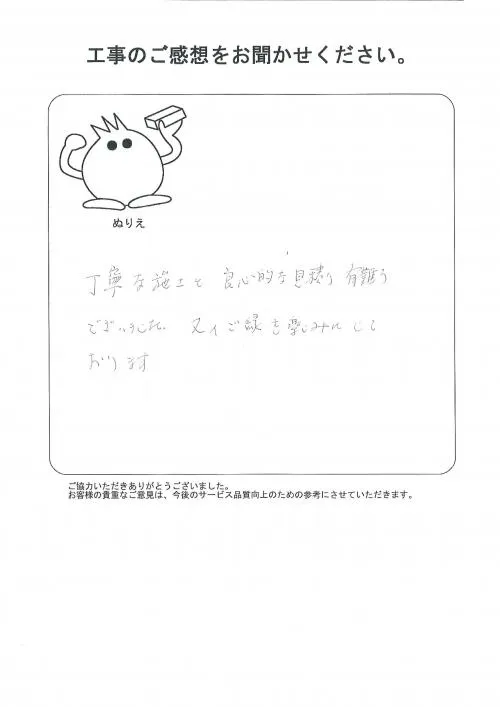 工事のご感想をお聞かせください。
ぬりえ
丁寧な施工と 良心的な見積り 有難う
ございました。 又のご縁を楽しみにして
おります
ご協力いただきありがとうございました。
お客様の貴重なご意見は、今後のサービス品質向上のための参考にさせていただきます。